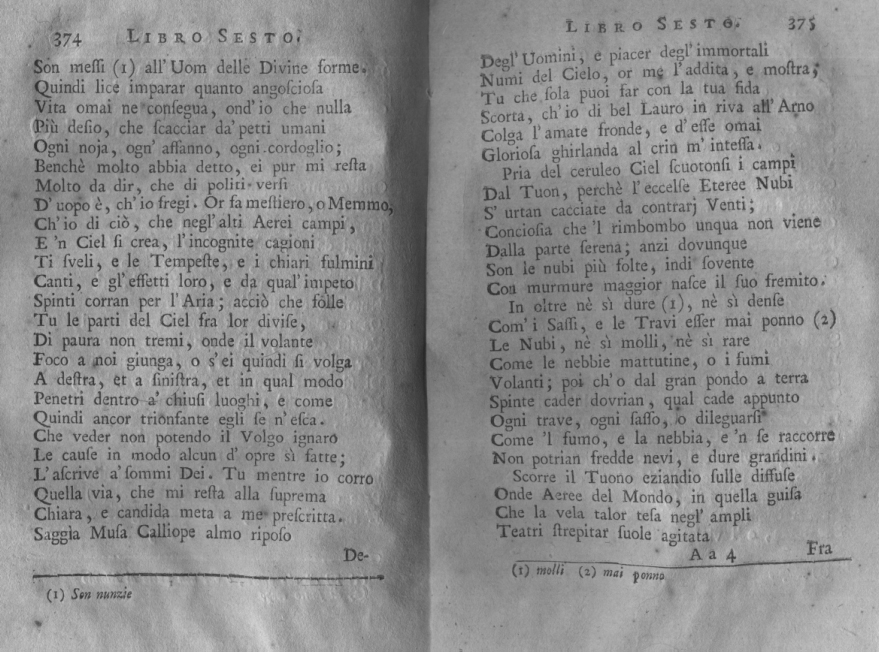 374 LIBRO SESTO.
Son meſſi (1) all'Uom delle Divine forme.
Quindi lice imparar quanto angoſcioſa
Vita omai ne conſegua, ond'io che nulla
Più deſio, che ſcacciar da'petti umani
Ogni noja, ogn'affanno, ogni cordoglio;
Benchè molto abbia detto, ei pur mi reſta
Molto da dir, che di politi verſi
D'uopo è, ch'io fregi. Or fa meſtiero, o Memmo,
Ch'io di ciò, che negl'alti Aerei campi,
E 'n Ciel ſi crea, l'incognite cagioni
Ti ſveli, e le Tempeſte, e i chiari fulmini
Canti, e gl'effetti loro, e da qual'impeto
Spinti corran per l'Aria; acciò che folle
Tu le parti del Ciel fra lor diviſe,
Di paura non tremi, onde il volante
Foco a noi giunga, o s'ei quindi ſi volga
A deſtra, et a ſiniſtra, et in qual modo
Penetri dentro a' chiuſi luoghi, e come
Quindi ancor trionfante egli ſe n'eſca.
Che veder non potendo il Volgo ignaro
Le cauſe in modo alcun d'opre sì fatte;
L'aſcrive a'ſommi Dei. Tu mentre io corro
Quella via, che mi reſta alla ſuprema
Chiara, e candida meta a me preſcritta.
Saggia Muſa Calliope almo ripoſo
De-
(1) Son nunzie
LIBRO SESTO. 375
Degl'Uomini, e piacer degl'immortali
Numi del Cielo, or me l'addita, e moſtra;
Tu che ſola puoi far con la tua fida
Scorta, ch'io di bel Lauro in riva all'Arno
Colga l'amate fronde, e d'eſſe omai
Glorioſa ghirlanda al crin m'inteſſa.
Pria del ceruleo Ciel ſcuotonſi i campi
Dal Tuon, perchè l'eccelſe Eteree Nubi
S'urtan cacciate da contrarj Venti;
Concioſia che 'l rimbombo unqua non viene
Dalla parte ſerena; anzi dovunque
Son le nubi più folte, indi ſovente
Con murmure maggior naſce il ſuo fremito.
In oltre nè sì dure (1), nè sì denſe
Com'i Saſſi, e le Travi eſſer mai ponno (2)
Le Nubi, nè sì molli, nè sì rare
Come le nebbie mattutine, o i fumi
Volanti; poi ch'o dal gran pondo a terra
Spinte cader dovrian, qual cade appunto
Ogni trave, ogni ſaſſo, o dileguarſi
Come 'l fumo, e la nebbia, e 'n ſe raccorre
Non potrian fredde nevi, e dure grandini.
Scorre il Tuono eziandio ſulle diffuſe
Onde Aeree del Mondo, in quella guiſa
Che la vela talor teſa negl'ampli
Teatri ſtrepitar ſuole agitata
A a 4 Fra
(1) molli (2) mai ponno